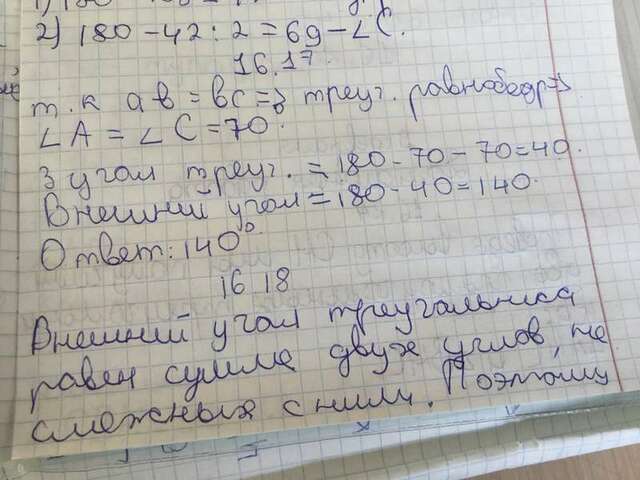 2) 180 - 42 : 2 = 69 - ∠C.
16.17.
т.к ав = вс => треуг. равнобедр =>
∠A = ∠C = 70.
3 угол треуг. = 180 - 70 - 70 = 40.
Внешний угол = 180 - 40 = 140.
Ответ: 140°
16 18
Внешний угол треугальника
равен сумме двух углов, не
смежных с ним. Поэтому